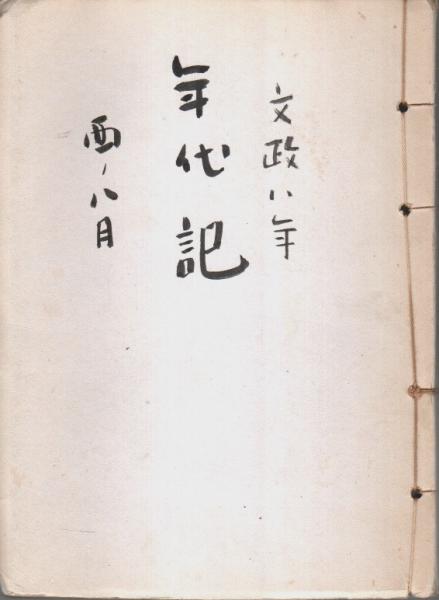 文政八年
年代記
酉ノ八月